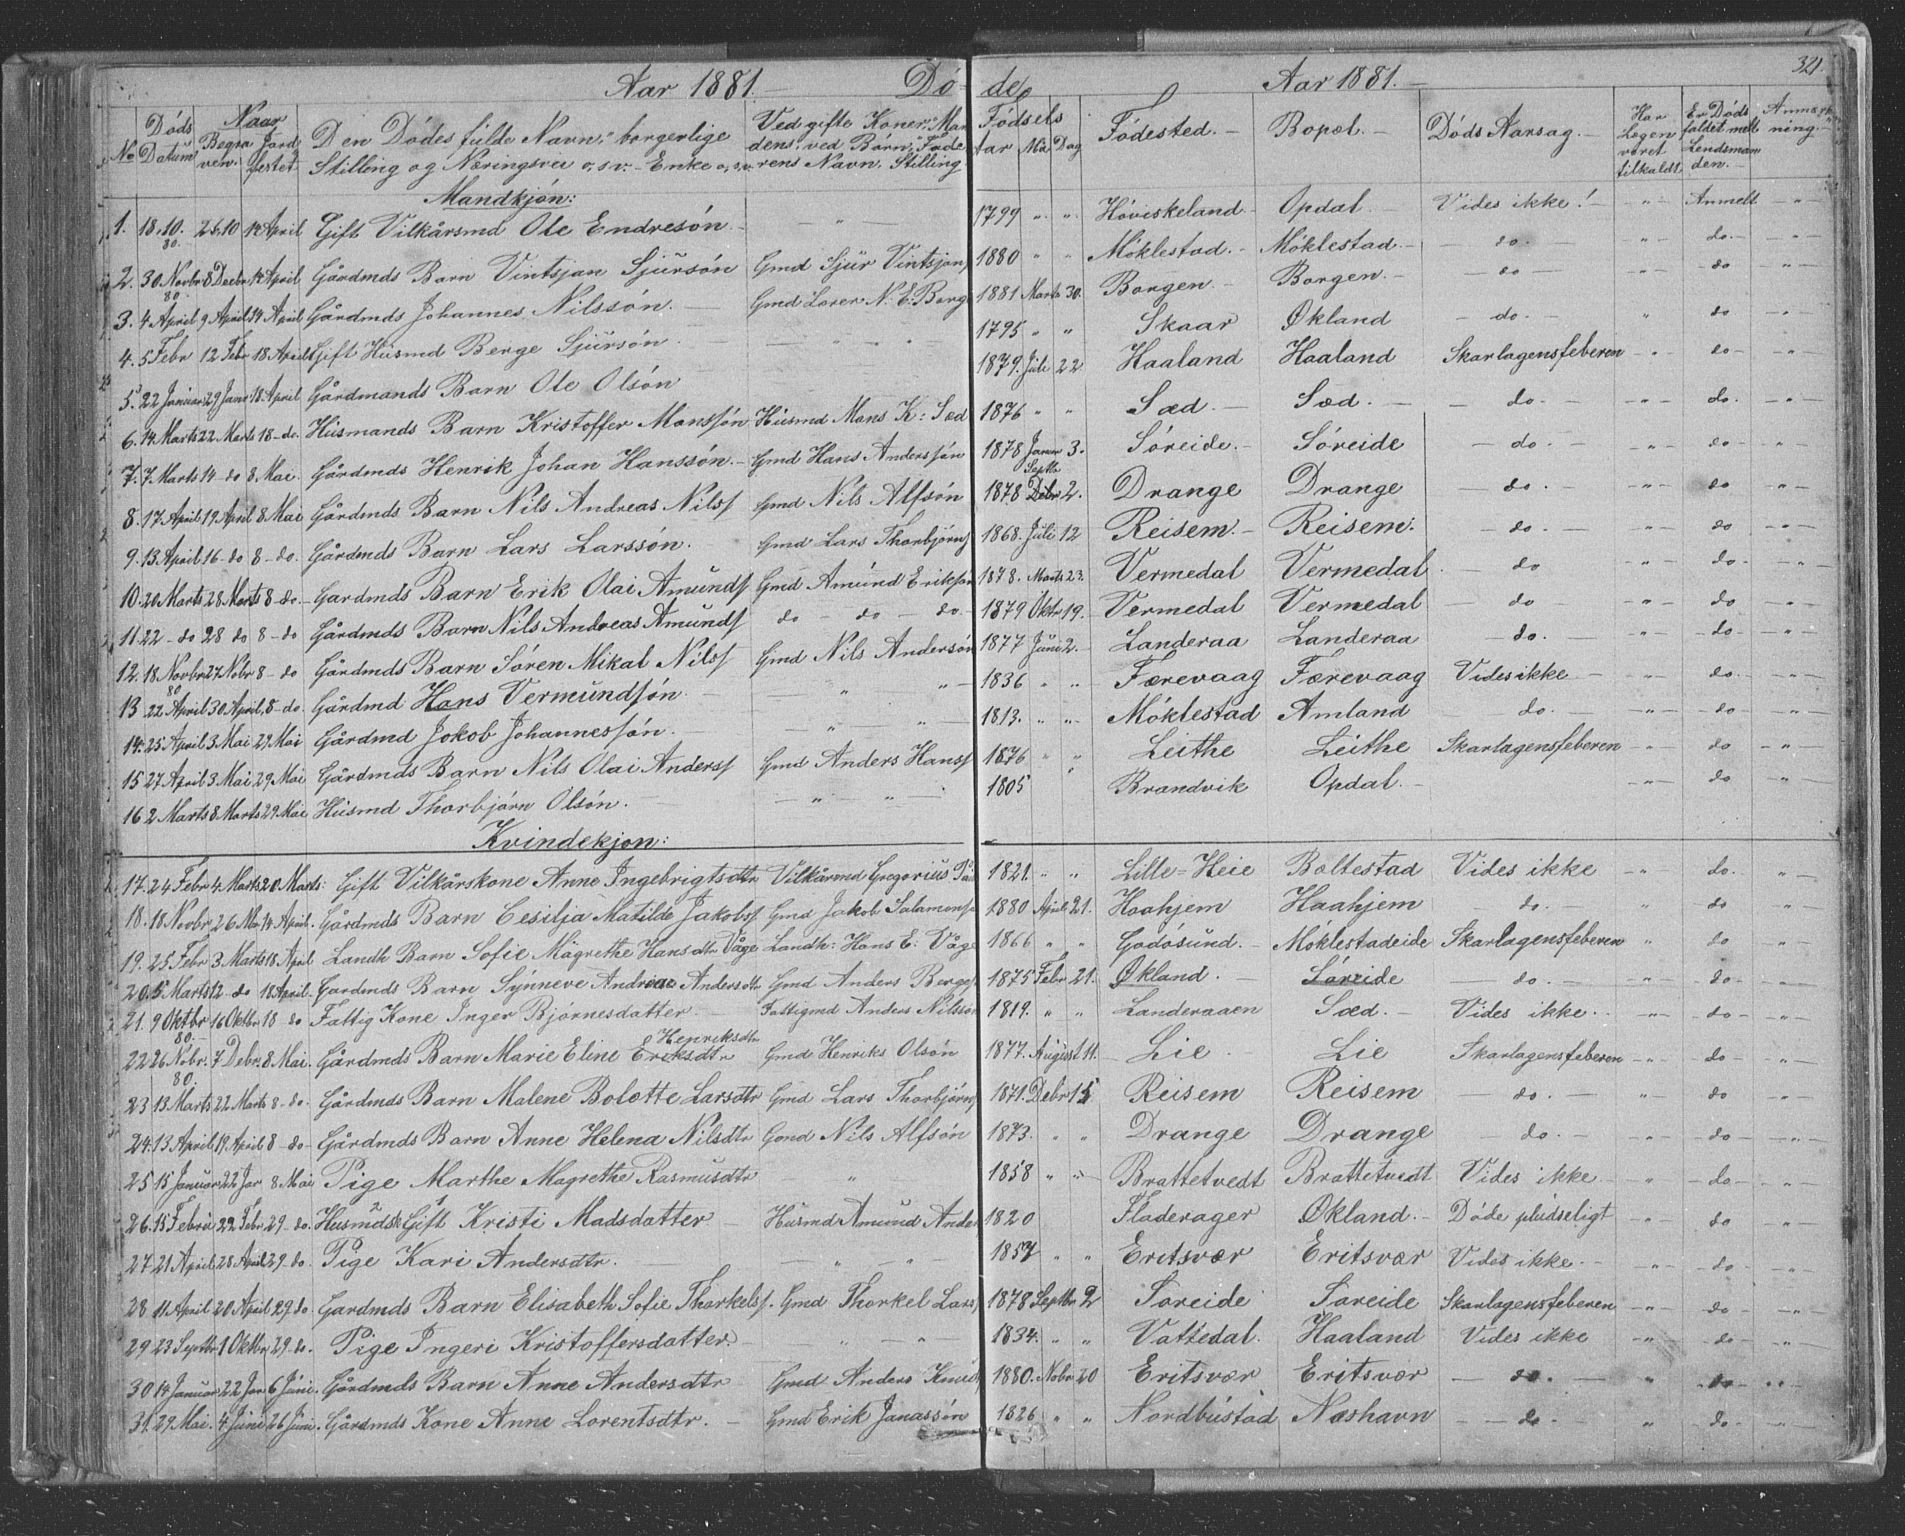 Aar 1881. — Dö- de. Aar 1881. — 321.
No Döds Datum Naar Begra ven. Jord festet Den Dödes fulde Navn, borgerlige Stilling og Næringsvei o, s v. - Enke o, s.v. Ved gifte Koner, Man dens, ved Börn, Fade rens Navn, Stilling Födsels Aar Md Dag Födested. — Bopæl. — Döds Aarsag. — Har Lægen været tilkaldt Er Döds faldet melt Lendsman den. — Anmærk ning.
Mandkjön:
1. 18/10. 80. 25/10 14 April Gift Vilkårsmd Ole Endresön. — „ 1799 „ „ Höviskeland Opdal — Vides ikke! — „ Anmelt „
2. 30 Novbr 80. 8 Decbr 14 April Gårdmds Barn Vintsjan Sjursön Gmd Sjur Vintsjans 1880 „ „ Möklestad. — Möklestad. — do. „ do. „
3. 4 April 9 April 14 April Gårdmds Johannes Nilssön. — Gmd Lærer N. E. Borge 1881 Marts 30. Borgen — Borgen. — do „ do „
4. 5 Febr 12 Febr 18 April Gift Husmd Berge Sjursön. — „ 1795 „ „ Skaar Økland — do. — „ do „
5. 22 Januar 29 Janr 18 April Gårdmands Barn Ole Olsön 1879. Juli 22 Haaland Haaland Skarlagensfeberen „ do „
6. 14 Marts 22 Marts 18 - do. Husmands Barn Kristoffer Monssön Husmd Mons K: Sæd 1876 „ „ Sæd. — Sæd. — do. — „ do. „
7. 7 Marts 14 - do 8 Mai. Gårdmds Henrik Johan Hanssön. — Gmd Hans Anderssön 1878 Januar 3. Söreide. — Söreide — do. — „ do „
8. 17 April 19 April 8 Mai Gårdmds Barn Nils Andreas Nilss Gmd Nils Alfsön 1878 Septbr Debr 2. Drange Drange — do. — „ do „
9. 13 April 16 - do 8 - do. Gårdmds Barn Lars Larssön. Gmd Lars Thorbjörns 1868. Juli 12 Reisem. — Reisem. — do. — „ do „
10. 20 Marts 28 Marts 8 - do - Gardmds Barn Erik Olai Amunds Gmd Amund Eriksön 1878. Marts 23. Vermedal Vermedal — do „ do „
11. 22 - do 28 do 8 - do Gårdmds Barn Nils Andreas Amunds do - do - do. 1879 Oktr 19. Vermedal Vermedal — do „ do „
12. 18. Novbr 80 27 Nobr 8 - do Gårdmds Barn Sören Mikal Nilss Gmd Nils Andersön 1877 Juni 2. Landeraa Landeraa — do. „ do „
13 22 April 30 April, 8 - do. Gårdmd Hans Vermundsön. — „ „ 1836 „ „ Færevaag Færevaag Vides ikke „ do. „
14. 25 April 3 Mai 29 Mai Gårdmd Jokob Johannessön. — „ „ 1813. „ „ Möklestad Amland — do. — „ do „
15 27 April 3 Mai 29 Mai Gårdmds Barn Nils Olai Anderss Gmd Anders Hanss 1876 „ „ Leithe Leithe Skarlagensfeberen „ do „
16 2 Marts 8 Marts 29 Mai Husmd Thorbjörn Olsön. — „ „ 1805 Brandvik Opdal. — „ do „
Kvindekjön:
17. 24 Febr 4 Marts 20 Marts: Gift Vilkårskone Anne Ingebrigtsdtr Vilkårmd Gregorius 1821. „ „ Lille-Heie Boltestad Vides ikke „ do. „
18. 18 Novbr 26 Nbr 14 April. Gårdmds Barn Cesilja Matilde Jakobs. Gmd Jakob Salamons 1880 April 21. Haahjem Haahjem — do. — „ do „
19. 25 Febr 3 Marts 18 April Landh Barn Sofie Magrethe Hansdtr Våge Landh: Hans E. Våge 1866 „ „ Godösund. — Möklestadeide Skarlagensfeberen „ do „
20. 5 Marts 12 - do 18 April. Gardmds Barn Synneve Andreae Andersdtr Gmd Anders Berges 1875 Febr 21. Økland. — Söreide — do. — „ do „
21. 9 Oktbr 80. 16 Oktbr 18 do Fattig Kone Inger Björnesdatter — Fattigmd Anders Nilssön 1819. „ „ Landeraaen Sæd. — Vides ikke. „ do „
22 26 Nobr. 80. 7 Debr. 8 Mai. Gårdmds Barn Marie Eline Eriksdtr Henriksdtr Gmd Henriks Olsön 1877. August 11. Lie. Lie Skarlagensfeberen „ do „
23 13 Marts 22 Marts 8 - do. Gårdmds Barn Malene Bolette Larsdtr Gmd Lars Thorbjörns 1871. Debr 15 Reisem Reisem — do. — „ do „
24. 13 April 19 April 8 - do - Gårdmds Barn Anne Helena Nilsdtr Gmd Nils Alfsön 1873. „ „ Drange Drange — do. — „ do „
25 15 Januar 22 Jar 8 Mai Pige Marthe Magrethe Rasmusdtr „ 1858 „ „ Brattetvedt Brattetvedt Vides ikke „ do „
26. 15 Febrü 22 Febr 29 - do. Husmds Gift Kristi Madsdatter — Husmd Amund Ander 1820 Fladerager Økland. — Döde pludseligt „ do „
27 21 April 28 April 29. do. Pige Kari Andersdtr. — „ „ 1857 „ „ Eritsvær Eritsvær Vides ikke. — „ do „
28 11 April 20 April 29 do. Gardmds Barn Elisabeth Sofie Thorkels. Gmd Thorkel Lars 1878 Septbr 2 Soreide Soreide Skarlagensfeberen „ do „
29 23 Septbr 1 Oktbr 29. do. Pige Ingeri Kristoffersdatter. „ „ 1834. „ „ Vattedal. Haaland Vides ikke „ do „
30 14 Januar 22 Jar 6 Juni. Gårdmds Barn Anne Andersdtr Gmd Anders Knud 1880. Nobr 20 Eritsvær Eritsvær — do. — „ do „
31. 29 Mai. 4 Juni 26 Juni. Gårdmds Kone Anne Lorentsdtr. — Gmd Erik Janassön 1826 „ „ Nordbustad Næshavn — do — „ do „